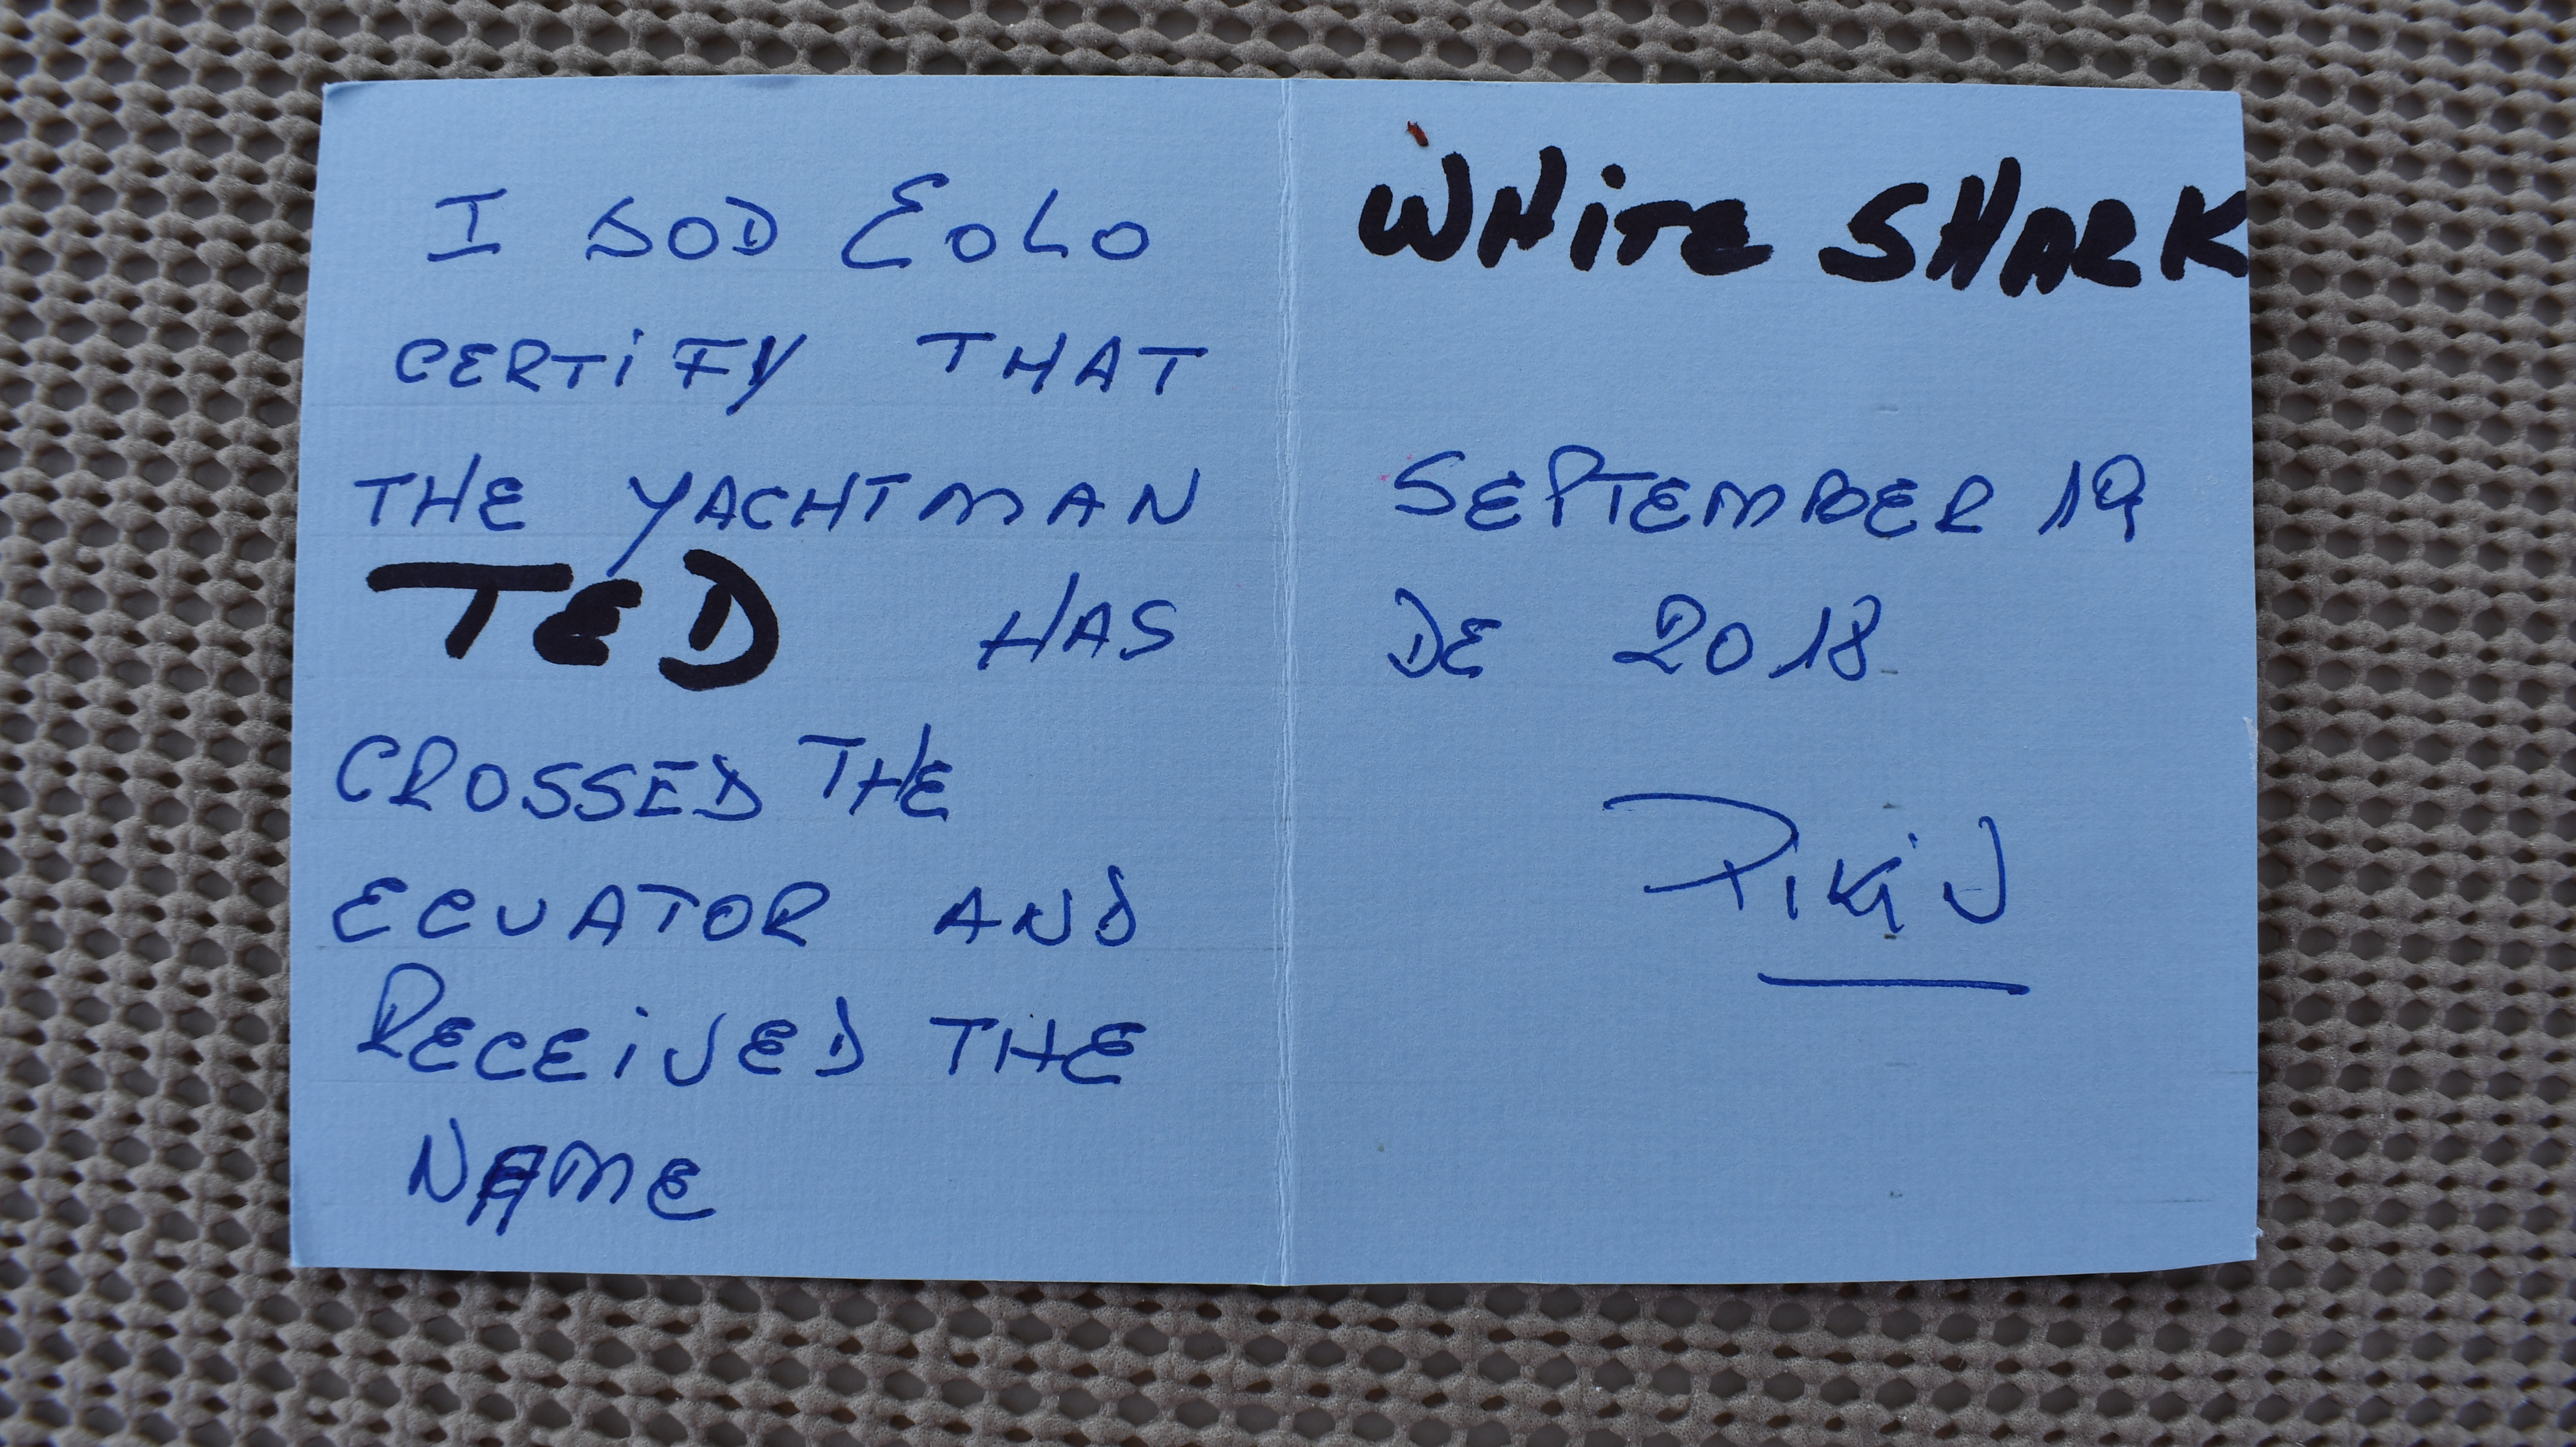 I GOD EOLO
CERTiFY THAT
THE YACHTMAN
TED HAS
CROSSED THE
ECUATOR AND
RECEiVED THE
NAME
WHiTE SHARK
SEPTEMBER 19
DE 2018